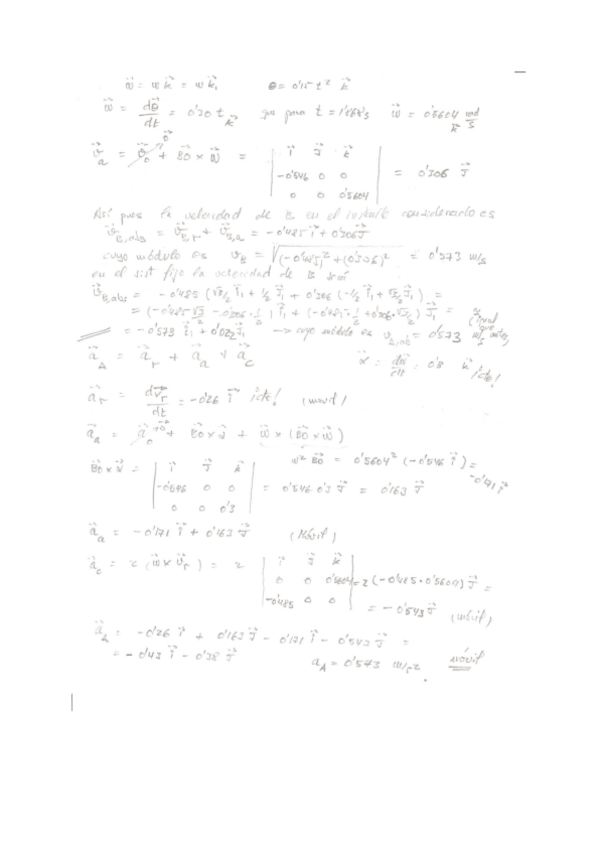 w⃗ = w k⃗ = w k⃗₁     θ = 0'15 t² k⃗
w⃗ = dθ⃗/dt = 0'30 t k⃗   que para t = 1'868s   w⃗ = 0'5604 rad/s k⃗
v⃗a = v⃗o + BO × w⃗ = | i⃗ j⃗ k⃗ | -0'546 0 0 | 0 0 0'5604 | = 0'306 j⃗
Así pues la velocidad de B en el instante considerado es
v⃗B,abs = v⃗B,r + v⃗B,a = -0'485 i⃗ + 0'306 j⃗
cuyo módulo es vB = √((-0'485)² + (0'306)²) = 0'573 m/s
en el sist fijo la velocidad de B será
v⃗B,abs = -0'485 (√3/2 i⃗₁ + 1/2 j⃗₁) + 0'306 (-1/2 i⃗₁ + √3/2 j⃗₁) =
= (-0'485 √3/2 - 0'306 · 1/2) i⃗₁ + (-0'485 · 1/2 + 0'306 · √3/2) j⃗₁ =
= -0'573 i⃗₁ + 0'022 j⃗₁ → cuyo módulo es vB,ab = 0'573 m/s (igual que antes)
a⃗A = a⃗r + a⃗a + a⃗c     α⃗ = dw⃗/dt = 0'3 k⃗ ¡cte!
a⃗r = dv⃗r/dt = -0'26 i⃗ ¡cte! (móvil)
a⃗a = a⃗o + BO × α⃗ + w⃗ × (BO × w⃗)
w² BO = 0'5604² (-0'546 i⃗) = -0'171 i⃗
BO × α⃗ = | i⃗ j⃗ k⃗ | -0'546 0 0 | 0 0 0'3 | = 0'546 · 0'3 j⃗ = 0'163 j⃗
a⃗a = -0'171 i⃗ + 0'163 j⃗   (Móvil)
a⃗c = 2 (w⃗ × v⃗r) = 2 | i⃗ j⃗ k⃗ | 0 0 0'5604 | -0'485 0 0 | = 2 (-0'485 · 0'5604) j⃗ =
= -0'543 j⃗ (móvil)
a⃗A = -0'26 i⃗ + 0'163 j⃗ - 0'171 i⃗ - 0'543 j⃗ =
= -0'43 i⃗ - 0'38 j⃗     aA = 0'573 m/s2   móvil